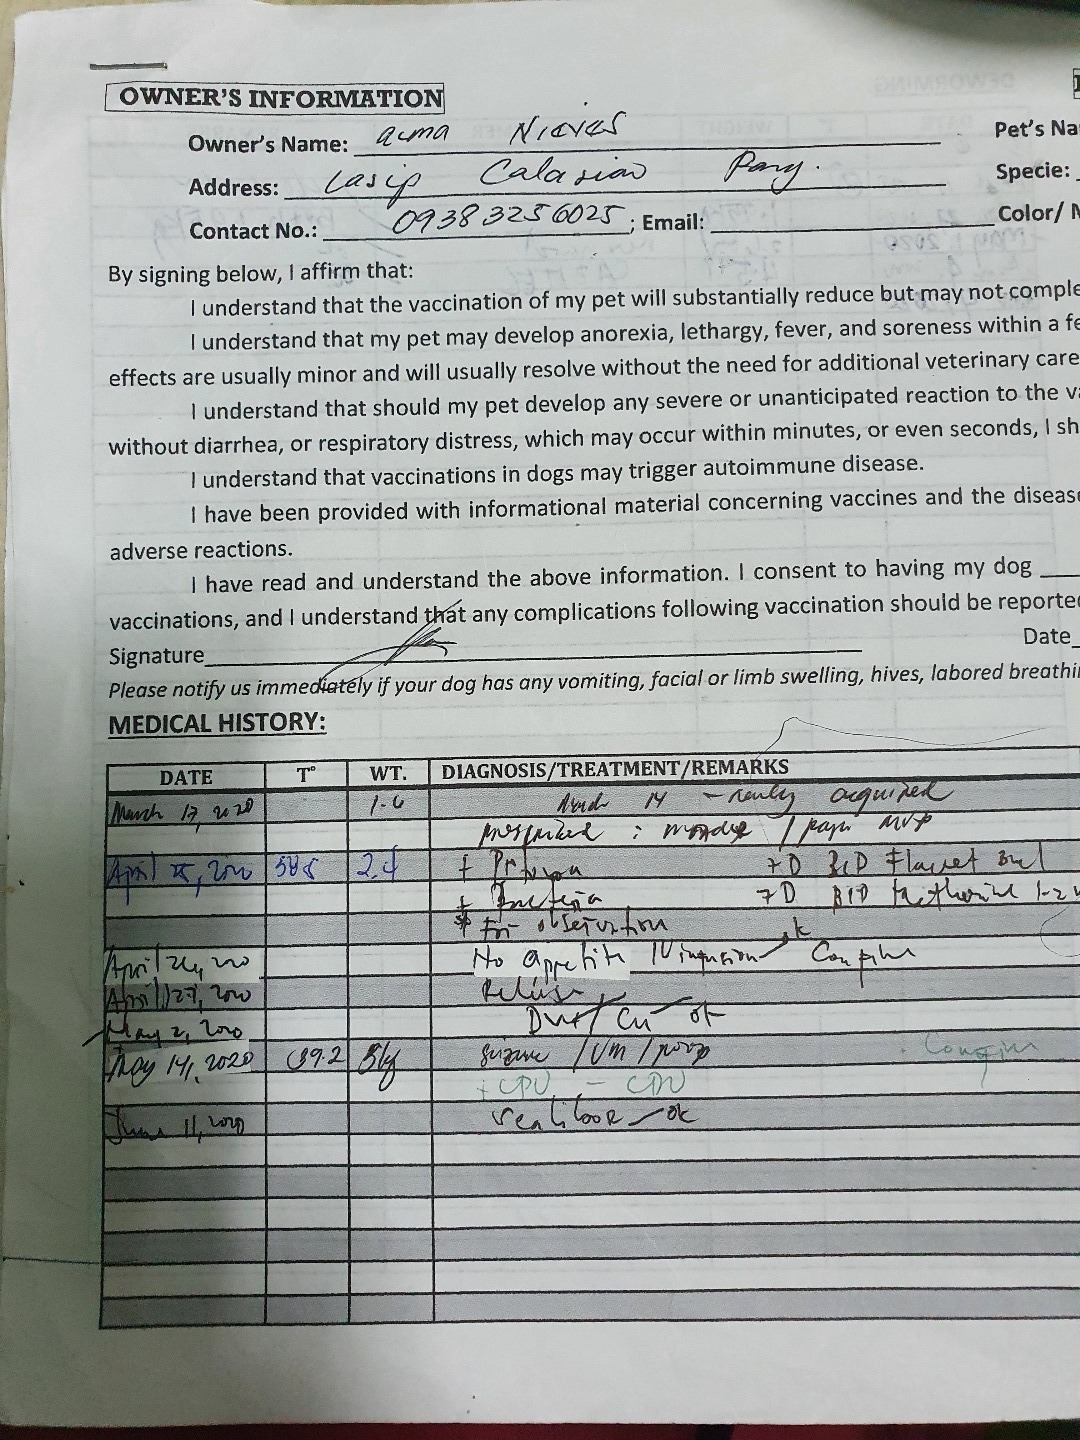 OWNER'S INFORMATION
Owner's Name: Alma Nieves Pet's Na
Address: Lasip Calasiao Pang. Specie:
Contact No.: 09383256025; Email: Color/ M
By signing below, I affirm that:
I understand that the vaccination of my pet will substantially reduce but may not comple
I understand that my pet may develop anorexia, lethargy, fever, and soreness within a fe
effects are usually minor and will usually resolve without the need for additional veterinary care
I understand that should my pet develop any severe or unanticipated reaction to the va
without diarrhea, or respiratory distress, which may occur within minutes, or even seconds, I sh
I understand that vaccinations in dogs may trigger autoimmune disease.
I have been provided with informational material concerning vaccines and the disease
adverse reactions.
I have read and understand the above information. I consent to having my dog
vaccinations, and I understand that any complications following vaccination should be reported
Signature Date
Please notify us immediately if your dog has any vomiting, facial or limb swelling, hives, labored breathin
MEDICAL HISTORY:
DATE T° WT. DIAGNOSIS/TREATMENT/REMARKS
March 17, 2020 1.6 March 14 - newly acquired
prescribed :
April 25, 2020 38.5 2.4 + 7D BID
+ 7D BID
* For observation ok
April 26, 2020 No appetite IV infusion Confine
April 27, 2020 Release
May 2, 2020 ok
May 14, 2020 39.2 3kg Confine
+ CPV - CDV
June 11, 2020 ok